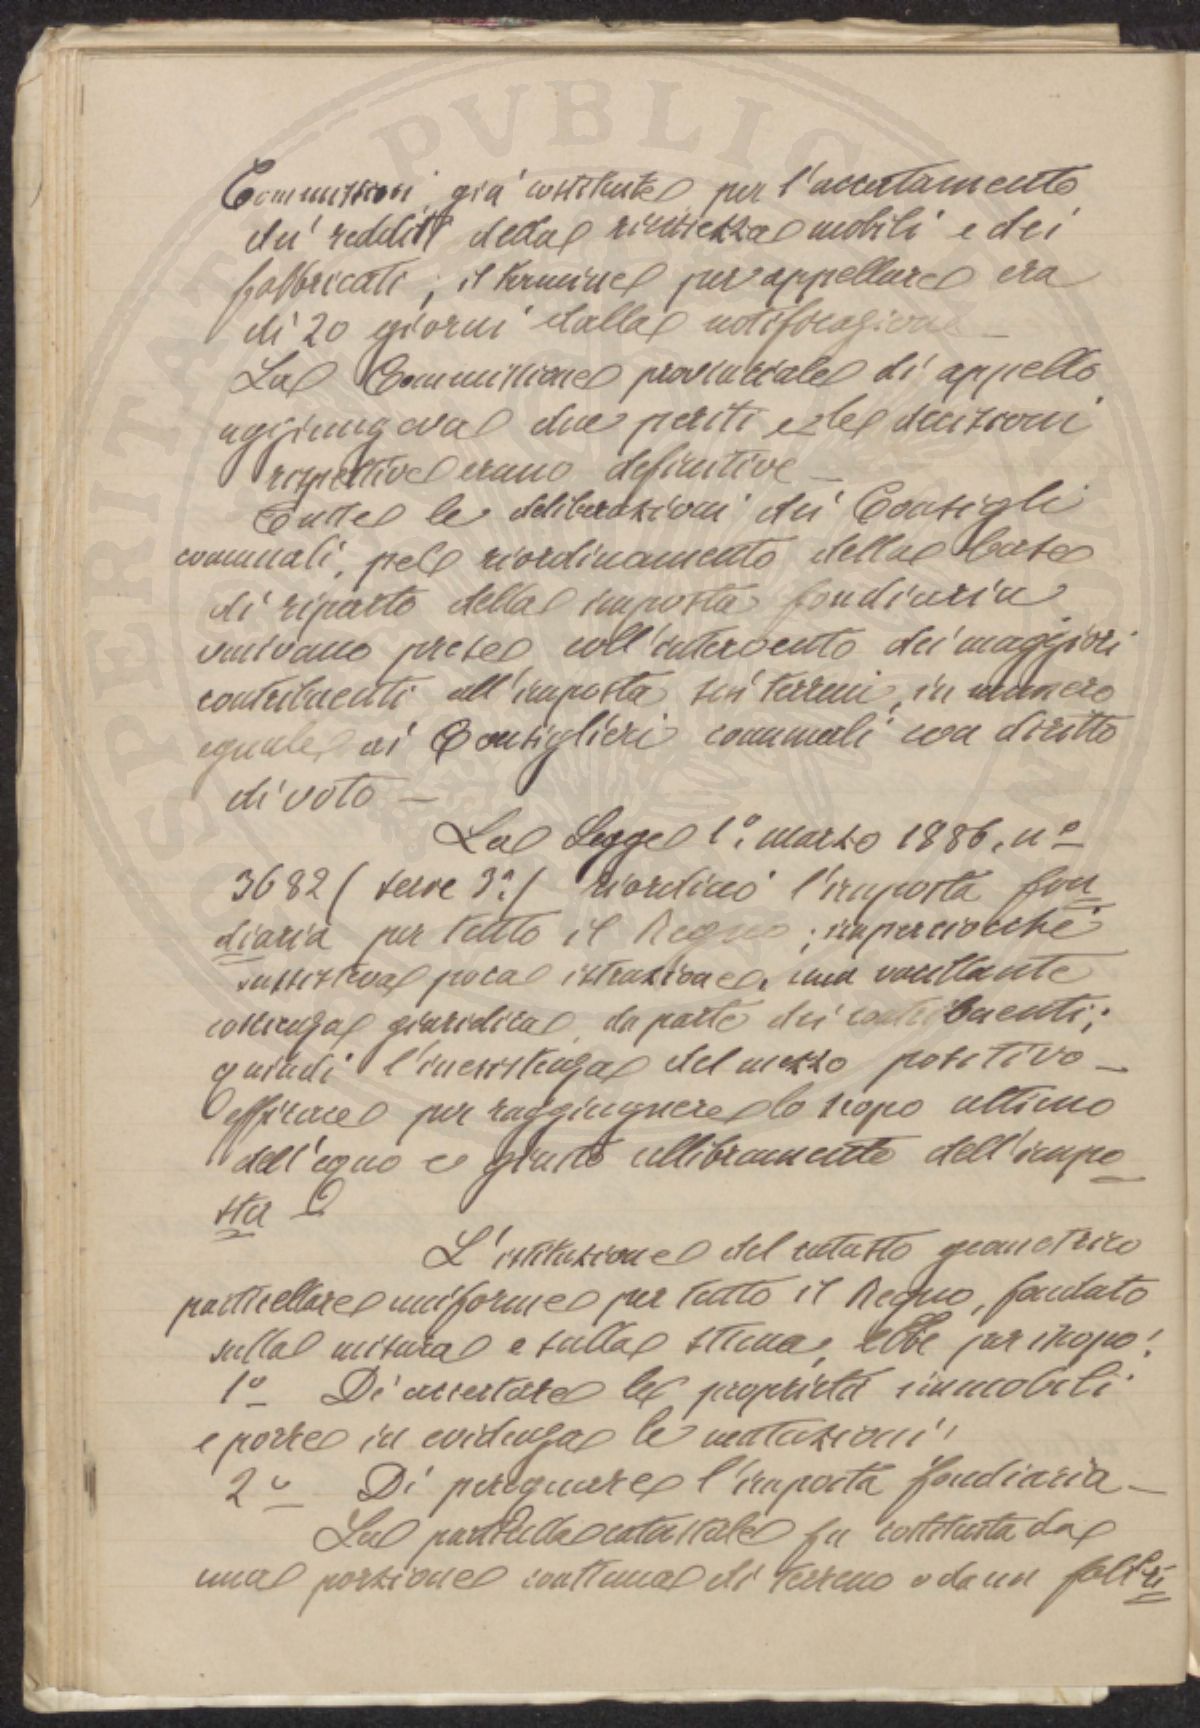 Commissioni già costituite per l'accertamento
dei redditi della ricchezza mobili e dei
fabbricati; il termine per appellare era
di 20 giorni dalla notificazione —
La Commissione provinciale di appello
aggiungeva due periti e le decisioni
rispettive erano definitive —
Tutte le deliberazioni dei Consigli
comunali, pel riordinamento della base
di riparto della imposta fondiaria
venivano prese coll'intervento dei maggiori
contribuenti all'imposta sui terreni, in numero
eguale ai Consiglieri comunali con diritto
di voto —
La Legge 1º marzo 1886, nº
3682 (serie 3ª) riordinò l'imposta fon
diaria per tutto il Regno; imperciocché
sussisteva poca istruzione, una vacillante
coscienza giuridica da parte dei contribuenti;
quindi l'inesistenza del mezzo positivo —
efficace per raggiungere lo scopo ultimo
dell'equo e giusto allibramento dell'impo
sta
L'istituzione del catasto geometrico
particellare uniforme per tutto il Regno, fondato
sulla misura e sulla stima, ebbe per iscopo:
1º Di accertare le proprietà immobili
e porre in evidenza le mutazioni;
2º Di perequare l'imposta fondiaria —
La particella catastale fu costituita da
una porzione continua di terreno o da un fabbri